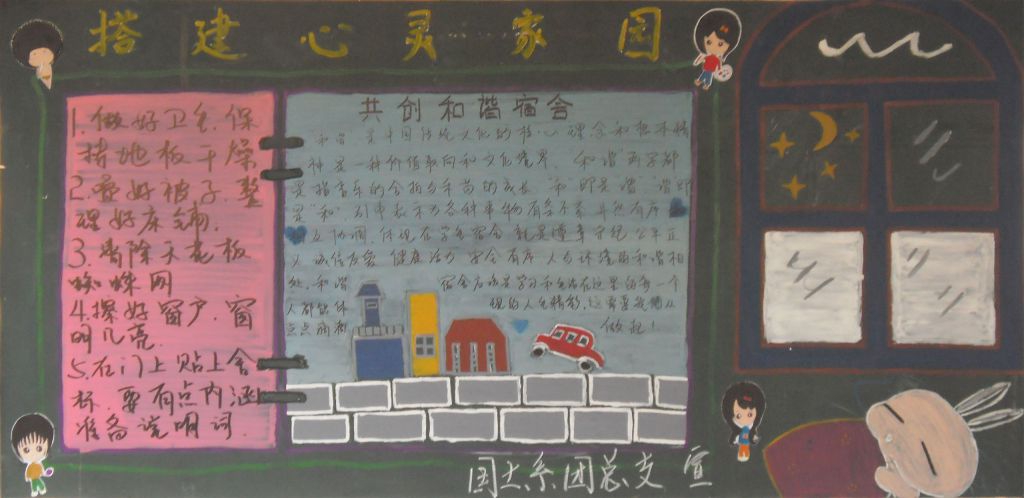 搭建心灵家园
1.做好卫生.保
持地板干燥
2.叠好被子.整
理好床铺.
3.清除天花板
蜘蛛网
4.擦好窗户.窗
明几亮.
5.在门上贴上舍
标.要有点内涵
准备说明词.
共创和谐宿舍
和谐是中国传统文化的核心理念和根本精
神是一种价值取向和文化境界.和谐两字都
是指音乐的合拍与禾苗的成长"和"即是"谐""谐"即
是"和"引申表示为各种事物有条不紊井然有序
相互协调.体现在学生宿舍就是遵章守纪公平正
义诚信友爱健康活力安全有序人与环境的和谐相
处.和谐宿舍应该是学习和生活在这里的每一个
人都能体现的人生精彩.这需要我们从
点点滴滴做起!
国土系团总支 宣